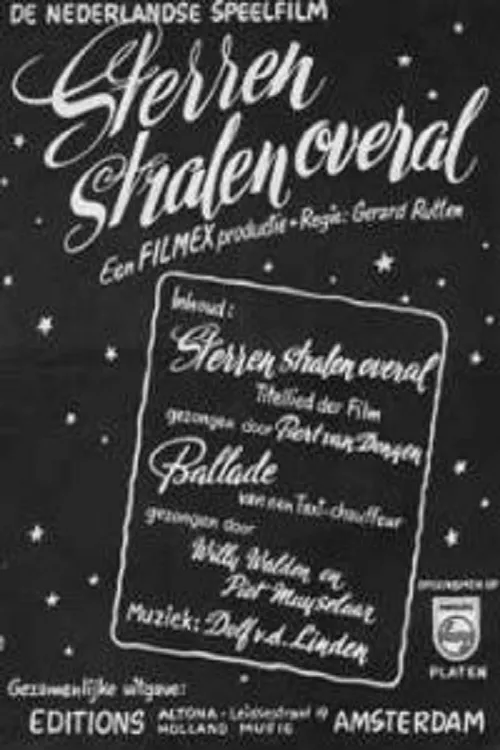 DE NEDERLANDSE SPEELFILM
Sterren
stralen overal
Een FILMEX productie - Regie: Gerard Rutten
Inhoud:
Sterren stralen overal
Titellied der Film
gezongen door Bert van Dongen
Ballade
van een Taxi-chauffeur
gezongen door
Willy Walden en
Piet Muyselaar
Muziek: Dolf v.d. Linden
OPGENOMEN OP
PHILIPS
PLATEN
Gezamenlijke uitgave:
EDITIONS ALTONA - Leidsestraat
HOLLAND MUSIC AMSTERDAM